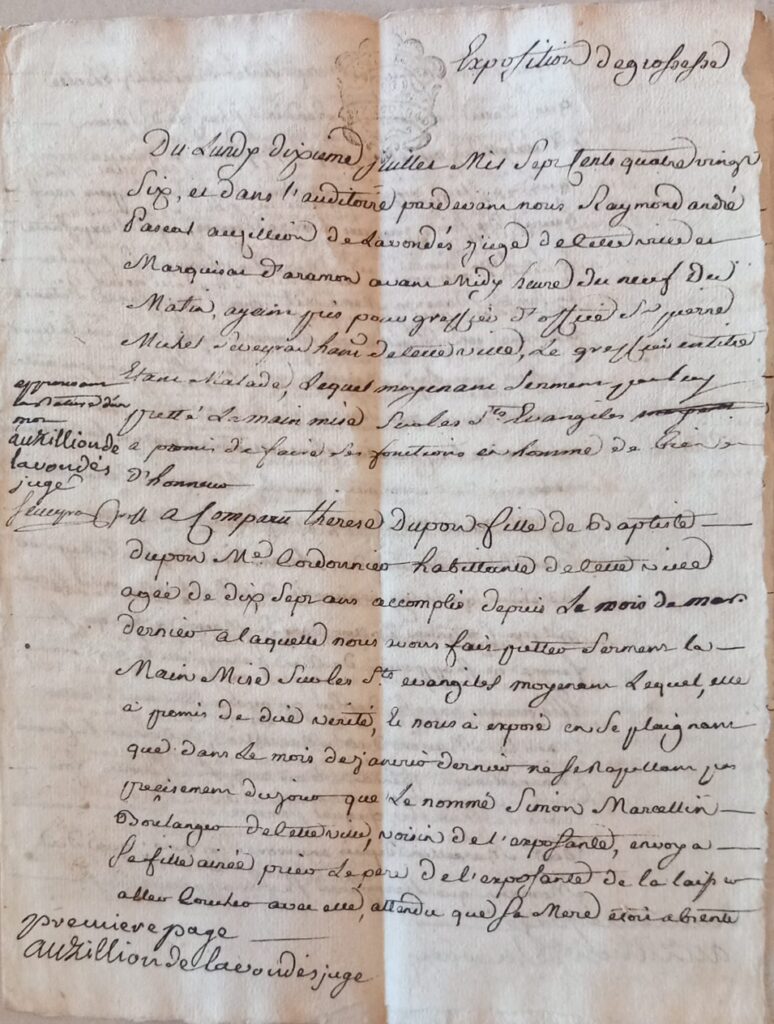 Exposition de grossesse
Du Lundy dixieme juillet Mil Sept Cents quatre vingt
Six, et dans l'auditoire pardevant nous Raymond andré
Pascal auzillion de Lavondés juge de cette ville et
Marquisat d'aramon avant Midy heure du neuf du
Matin, ayant pris pour greffier d'office Sr pierre
Michel Seveyrac hant de cette ville, Le greffier en titre
Etant Malade, Lequel moyenant Serment par luy
pretté La main mise Sur les Sts Evangiles
a promis de faire Ses fonctions en homme de bien et
d'honneur
approuvant
la rature d'un
mot
auzillion de
lavondés
juge
Seveyrac
a Comparu therese Dupon fille de Baptiste
dupon Me Cordonnier habittante de cette ville
agée de dix Sept ans accomplis depuis Le mois de mars
dernier a laquelle nous avons fait pretter Serment la
Main Mise Sur les Sts evangiles moyenant Lequel, elle
à promis de dire verité, Et nous à exposé en Se plaignant
que dans Le mois de janvier dernier ne Se Rapellant pas
precisement du jour que Le nommé Simon Marcellin
Boulanger de cette ville, voisin de l'exposante, envoya
Sa fille ainée prier Le pere de l'exposante de la laisser
aller Coucher avec elle, attendu que Sa Mere étoit absente
premiere page
auzillion de lavondés juge